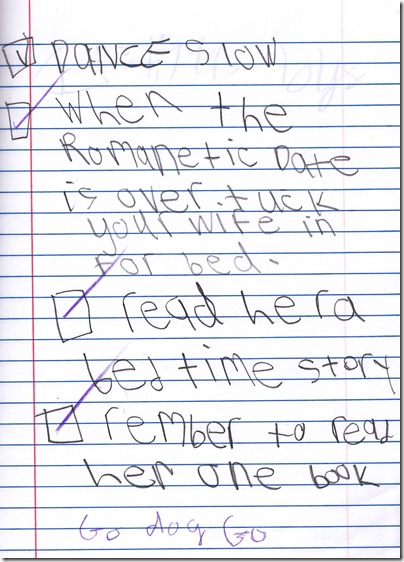 DANCE SLOW
when the
Romanetic Date
is over. tuck
your wife in
for bed.
read her a
bed time story
rember to read
her one book
Go dog Go